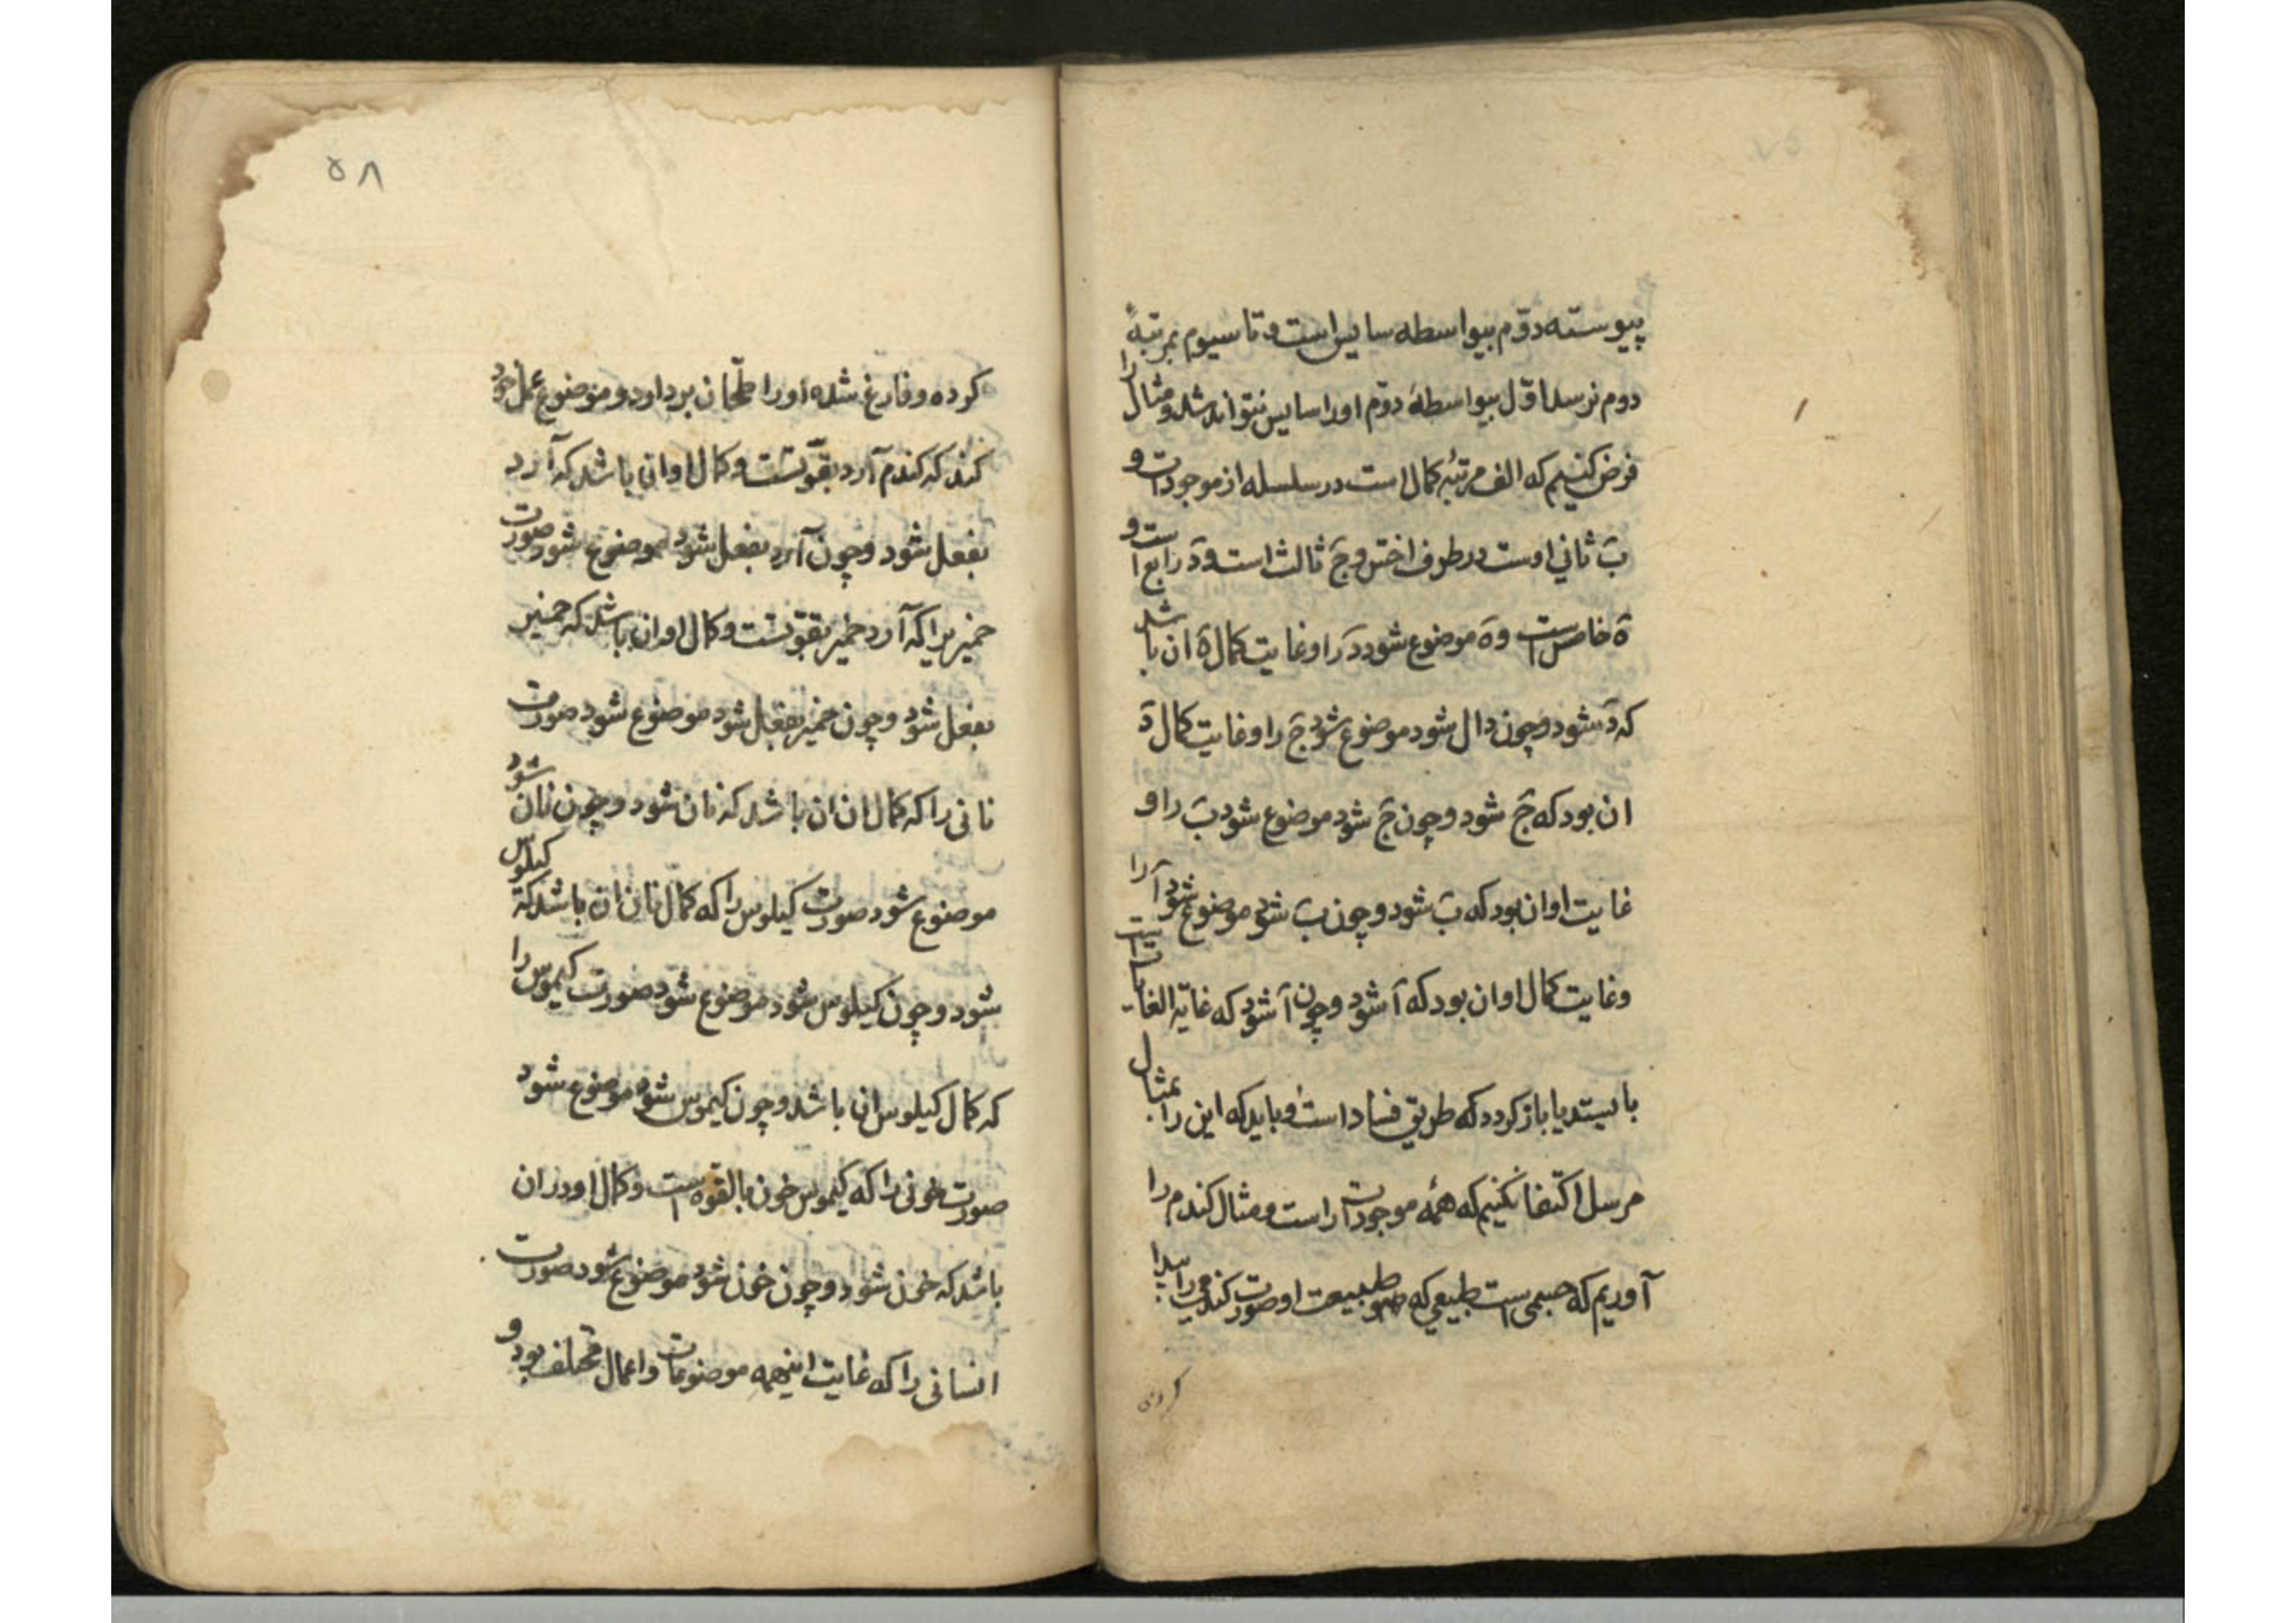 پیوسته دوّم بیواسطه سایس است و تا سیوم بمرتبهٔ
دوم نرسد اوّل بیواسطهٔ دوّم اورا سایس نتواند شد و مثال را
فرض کنیم که الف مرتبهٔ کمال است در سلسله از موجودات و
بَ ثانی اوست در طرف اخسّ و جَ ثالث است و دَ رابع است و
هَ خامس است و هَ موضوع شود دَ را و غایت کمال هَ ان باشد
که دَ شود و چون دال شود موضوع شود جَ را و غایت کمال دَ
ان بود که جَ شود و چون جَ شود موضوع شود بَ را و
غایت او ان بود که بَ شود و چون بَ شود موضوع شود آ را
و غایت کمال او ان بود که آ شود و چون آ شود که غایة الغایات است
بایستد یا باز کردد که طریق فساد است و باید که این را بمثال
مرسل اکتفا نکنیم که همهٔ موجودات راست و مثال کندم را
آوریم که جسمی است طبیعی که طبیعت او صورت کندمی را پیدا
کرده
۵۸
کرده و فارغ شده اورا طحّان بردارد و موضوع عمل خود
کند که کندم آرد بقوّتست و کمال او ان باشد که آرد
بفعل شود و چون آرد بفعل شود موضوع شود صورت
خمیر یرا که آرد خمیر بقوّتست و کمال او ان باشد که خمیر
بفعل شود و چون خمیر بفعل شود موضوع شود صورت
نانی را که کمال ان ان باشد که نان شود و چون نان شود
موضوع شود صورت کیلوس را که کمال نان ان باشد که کیلوس
شود و چون کیلوس شود موضوع شود صورت کیموس را
که کمال کیلوس ان باشد و چون کیموس شود موضوع شود
صورت خونی را که کیموس خون بالقوّه است و کمال او در ان
باشد که خون شود و چون خون شود موضوع شود صورت
انسانی را که غایت اینهمه موضوعات و اعمال مختلف بود و